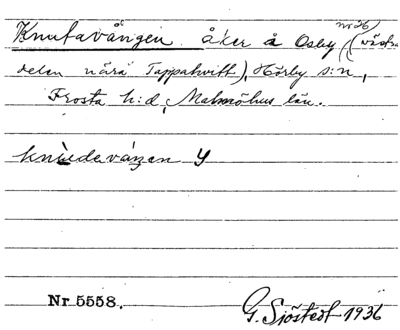 Knutavången åker å Osby nr 26 (västra
delen nära Tappahvitt), Hörby s:n,
Frosta h:d, Malmöhus län.
knùedaváŋen y
Nr 5558.
G. Sjöstedt 1936